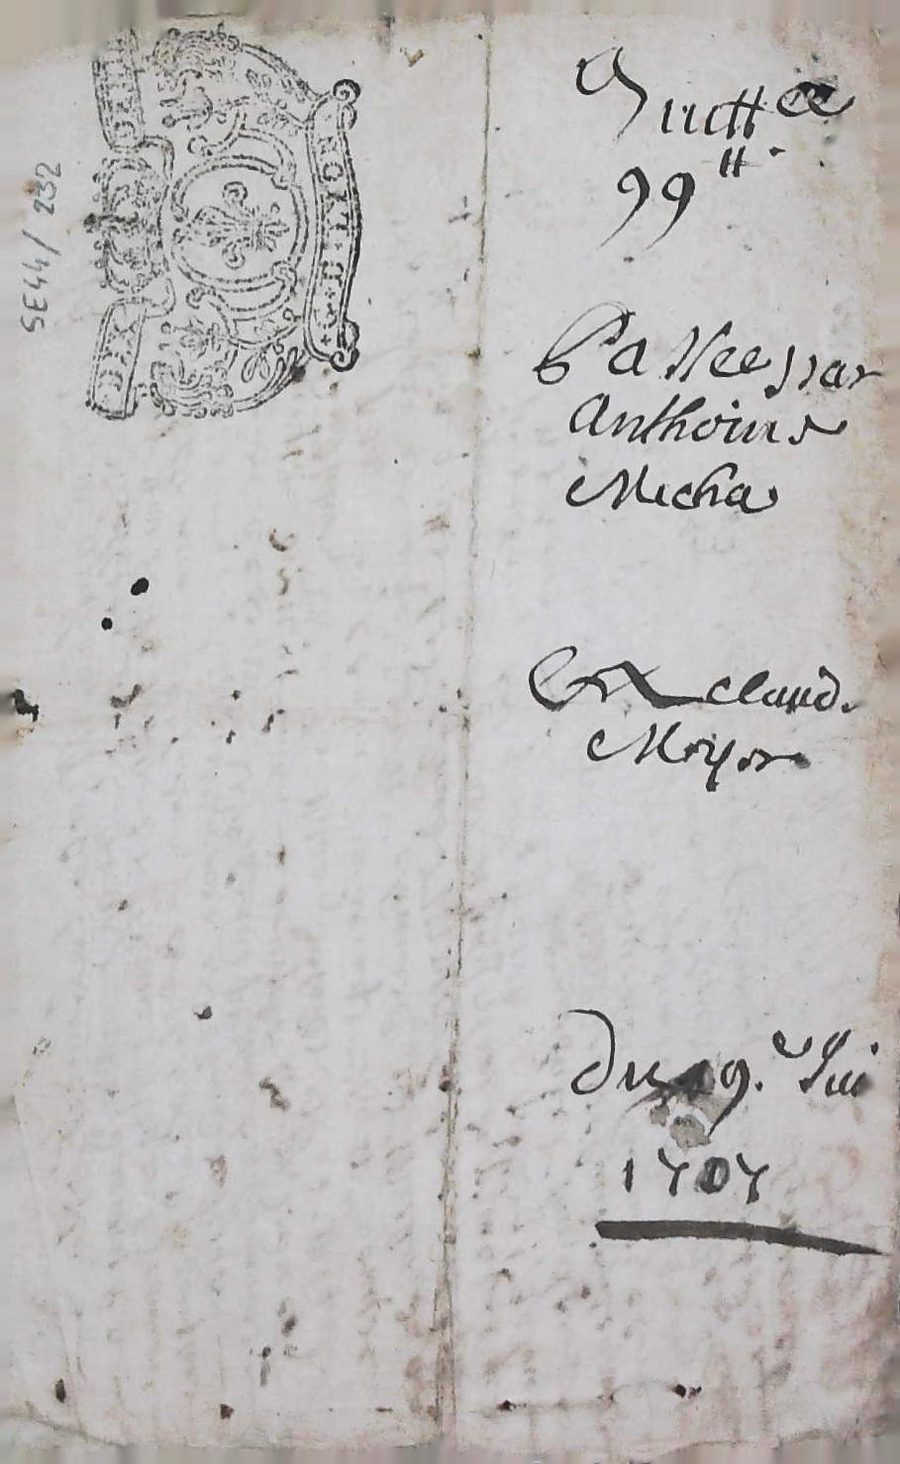 5E44/232
Quitt ce
99 tt.
Passee par
Anthoine
Micha
Et claud.
Moyor
du 19.e Jui
1707